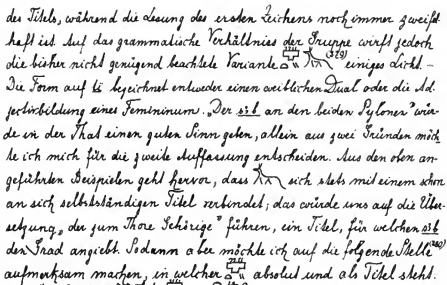 des Titels, während die Lesung des ersten Zeichens noch immer zweifel-
haft ist. Auf das grammatische Verhältniss der Gruppe wirft jedoch
die bisher nicht genügend beachtete Variante (379) einiges Licht. –
Die Form auf ti bezeichnet entweder einen weiblichen Dual oder die Ad-
jectivbildung eines Femininum. „Der sꜣb an den beiden Pylonen" wür-
de in der That einen guten Sinn geben, allein aus zwei Gründen möch
te ich mich für die zweite Auffassung entscheiden. Aus den oben an-
geführten Beispielen geht hervor, dass sich stets mit einem schon
an sich selbstständigen Titel verbindet; das würde uns auf die Über-
setzung „der zum Thore Gehörige" führen, ein Titel, für welchen sꜣb
den Grad angiebt. Sodann aber möchte ich auf die folgende Stelle (380)
aufmerksam machen, in welcher absolut und als Titel steht.